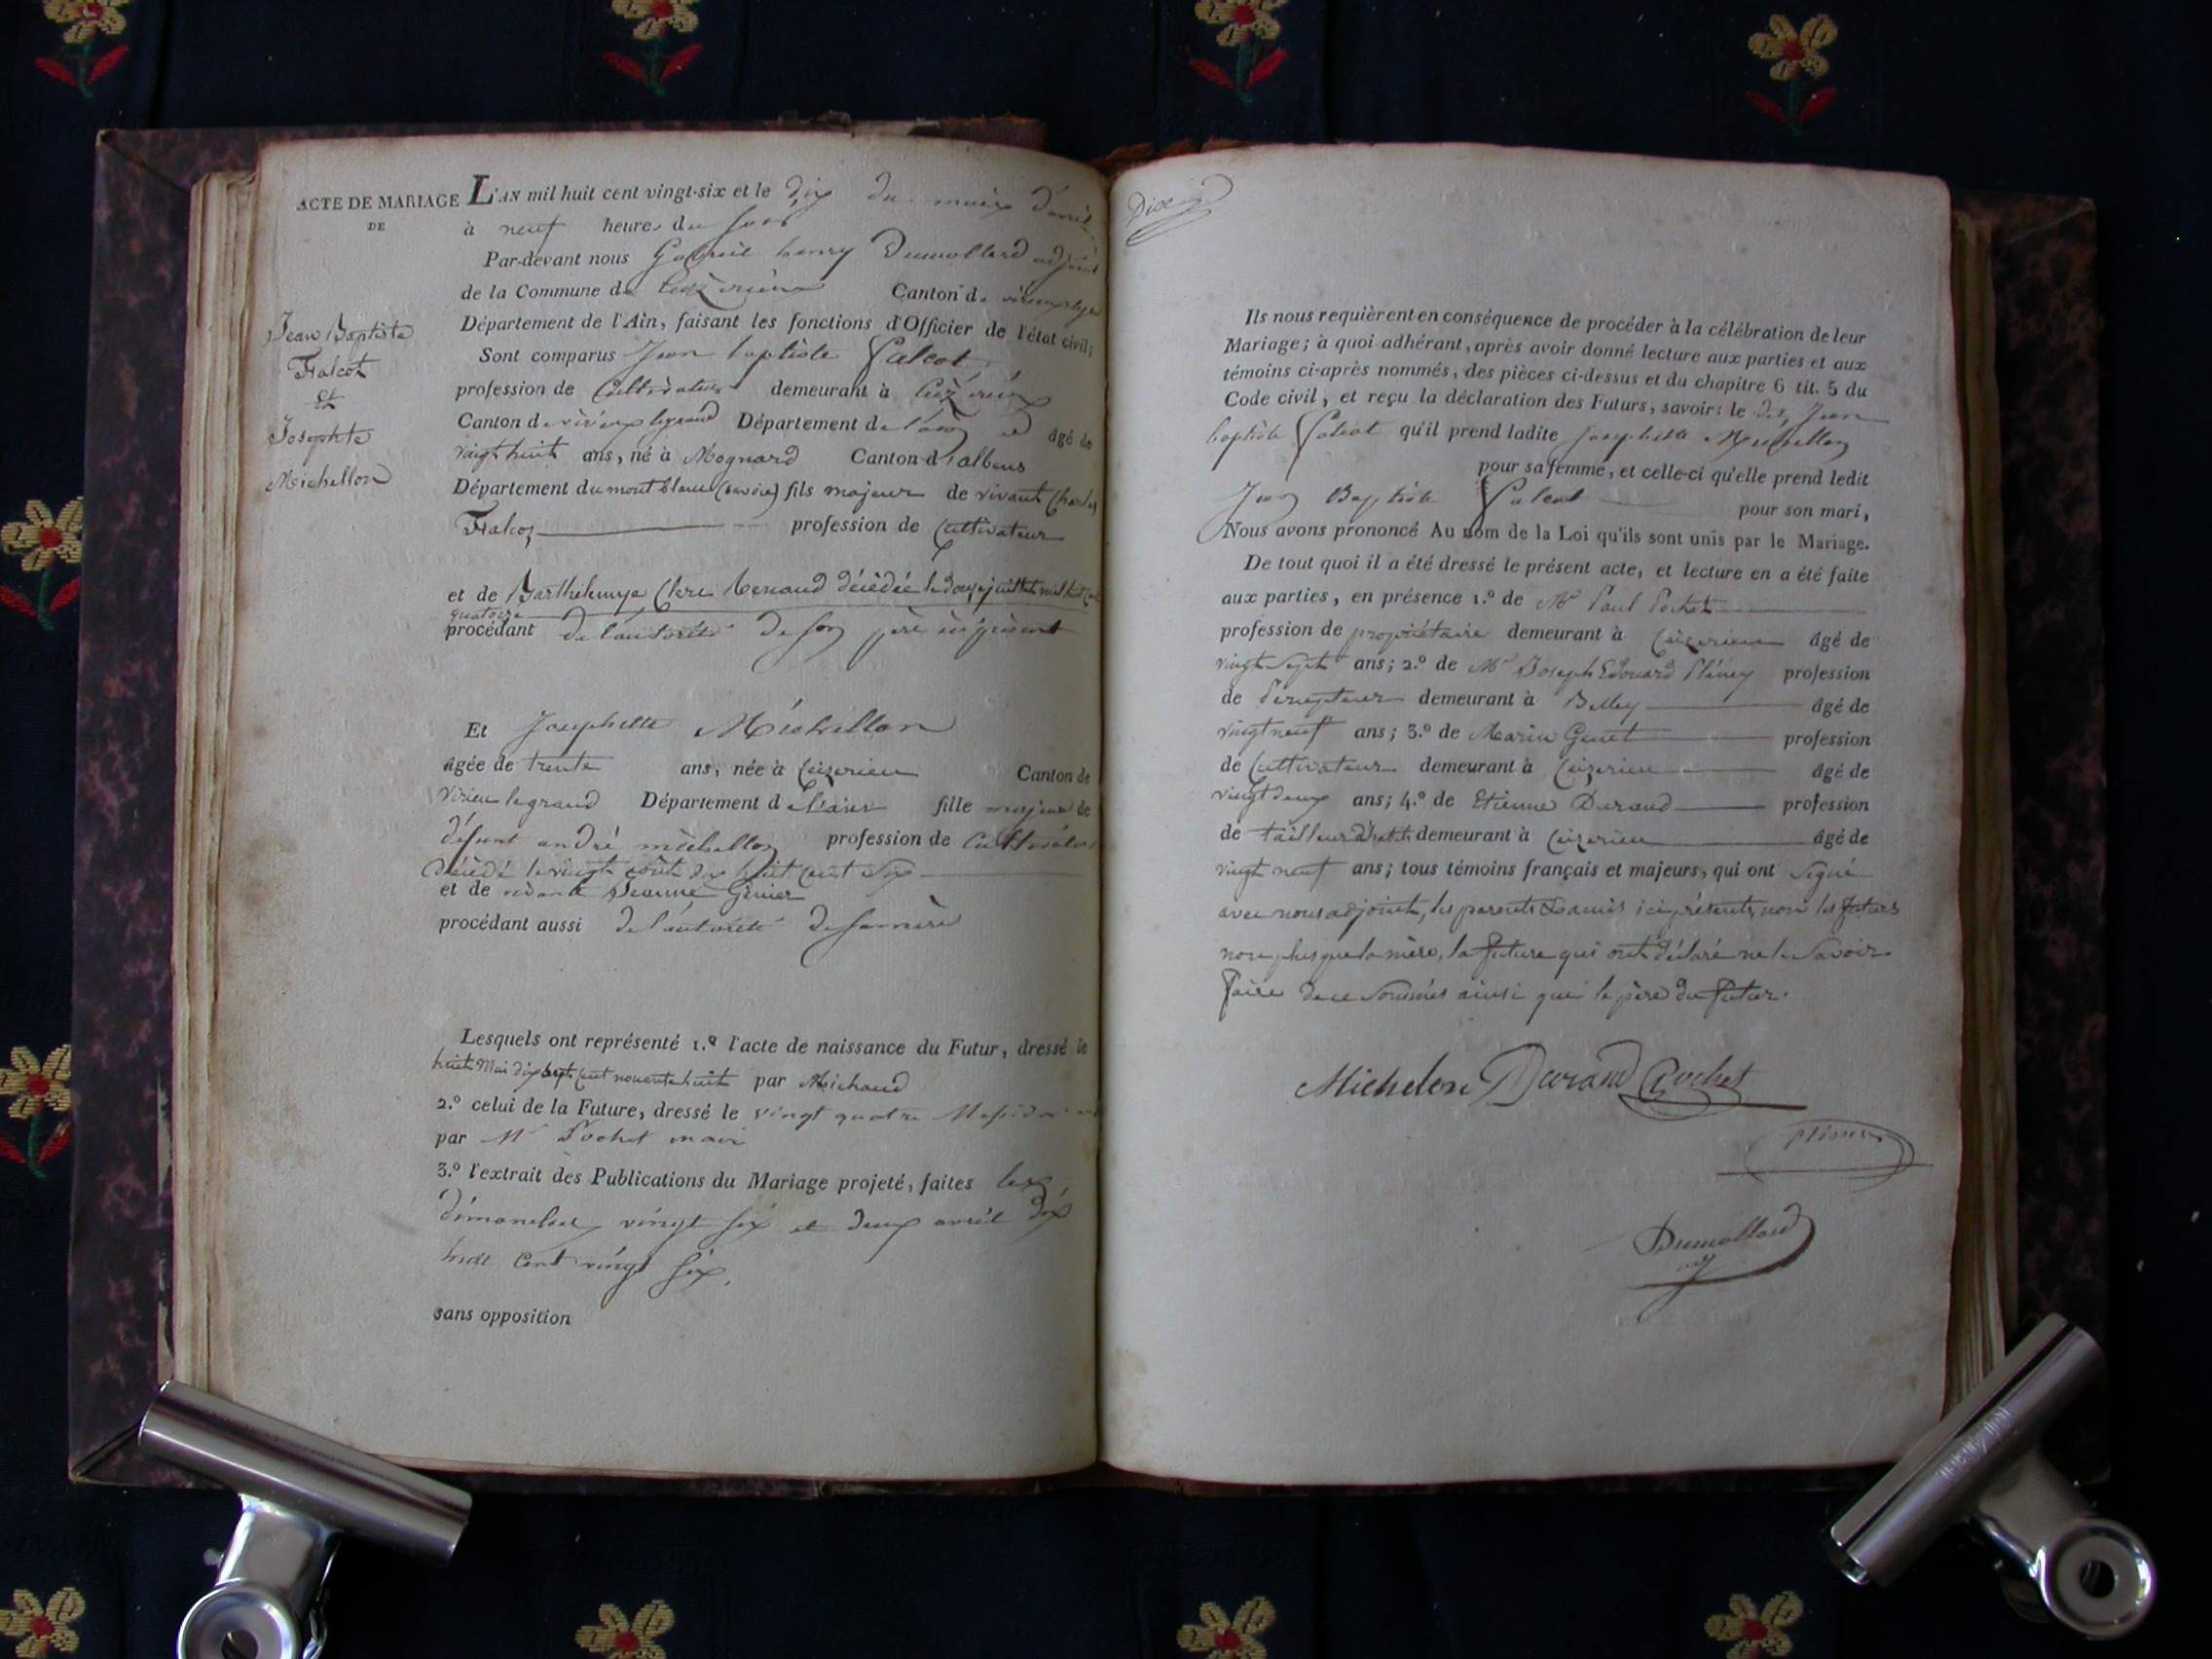 ACTE DE MARIAGE
DE
Jean Baptiste
Falcot
Et
Josephte
Michellon
L'AN mil huit cent vingt-six et le dix du mois d'avril
à neuf heures du soir
Par-devant nous Gabriel henry Dumollard adjoint
de la Commune de Ceizerieu Canton de virieu legd
Département de l'Ain, faisant les fonctions d'Officier de l'état civil;
Sont comparus Jean baptiste Falcot
profession de Cultivateur demeurant à Ceizerieu
Canton de virieu legrand Département de l'ain âgé de
vingt huit ans, né à Mognard Canton d'albens
Département du mont blanc (savoie) fils majeur de vivant Charles
Falcoz profession de Cultivateur
et de Barthelemye Clere Renaud décédée le douze juillet mil huit cent
quatorze
procédant de l'autorité de son père ici présent
Et Josephette Michellon
âgée de trente ans, née à Ceizerieu Canton de
virieu legrand Département de l'ain fille majeure de
défunt andré michellon profession de Cultivateur
décédé le vingt août dix huit cent six
et de vivante Jeanne Genier
procédant aussi de l'autorité de sa mère
Lesquels ont représenté 1.º l'acte de naissance du Futur, dressé le
huit Mai dix sept cent nonante huit par Michaud
2.º celui de la Future, dressé le vingt quatre Messidor
par Mr Pochet maire
3.º l'extrait des Publications du Mariage projeté, faites les
dimanches vingt six et deux avril dix
huit cent vingt six,
sans opposition
Dix
Ils nous requièrent en conséquence de procéder à la célébration de leur
Mariage; à quoi adhérant, après avoir donné lecture aux parties et aux
témoins ci-après nommés, des pièces ci-dessus et du chapitre 6 tit. 5 du
Code civil, et reçu la déclaration des Futurs, savoir: le dit Jean
baptiste Falcot qu'il prend ladite Josephette Michellon
pour sa femme, et celle-ci qu'elle prend ledit
Jean Baptiste Falcot pour son mari,
Nous avons prononcé Au nom de la Loi qu'ils sont unis par le Mariage.
De tout quoi il a été dressé le présent acte, et lecture en a été faite
aux parties, en présence 1.º de Mr Paul Pochet
profession de propriétaire demeurant à Ceizerieu âgé de
vingt sept ans; 2.º de Mr Joseph Edouard Plivey profession
de Percepteur demeurant à Belley âgé de
vingt neuf ans; 3.º de Marin Genet profession
de Cultivateur demeurant à Ceizerieu âgé de
vingt deux ans; 4.º de Etienne Durand profession
de tailleur d'habit demeurant à Ceizerieu âgé de
vingt neuf ans; tous témoins français et majeurs, qui ont signé
avec nous adjoint, les parents & amis ici présents, non les futurs
non plus que la mère, la future qui ont déclaré ne le savoir
faire de ce sommés ainsi que le père du futur.
Michelon Durand Pochet
Dumollard
adj